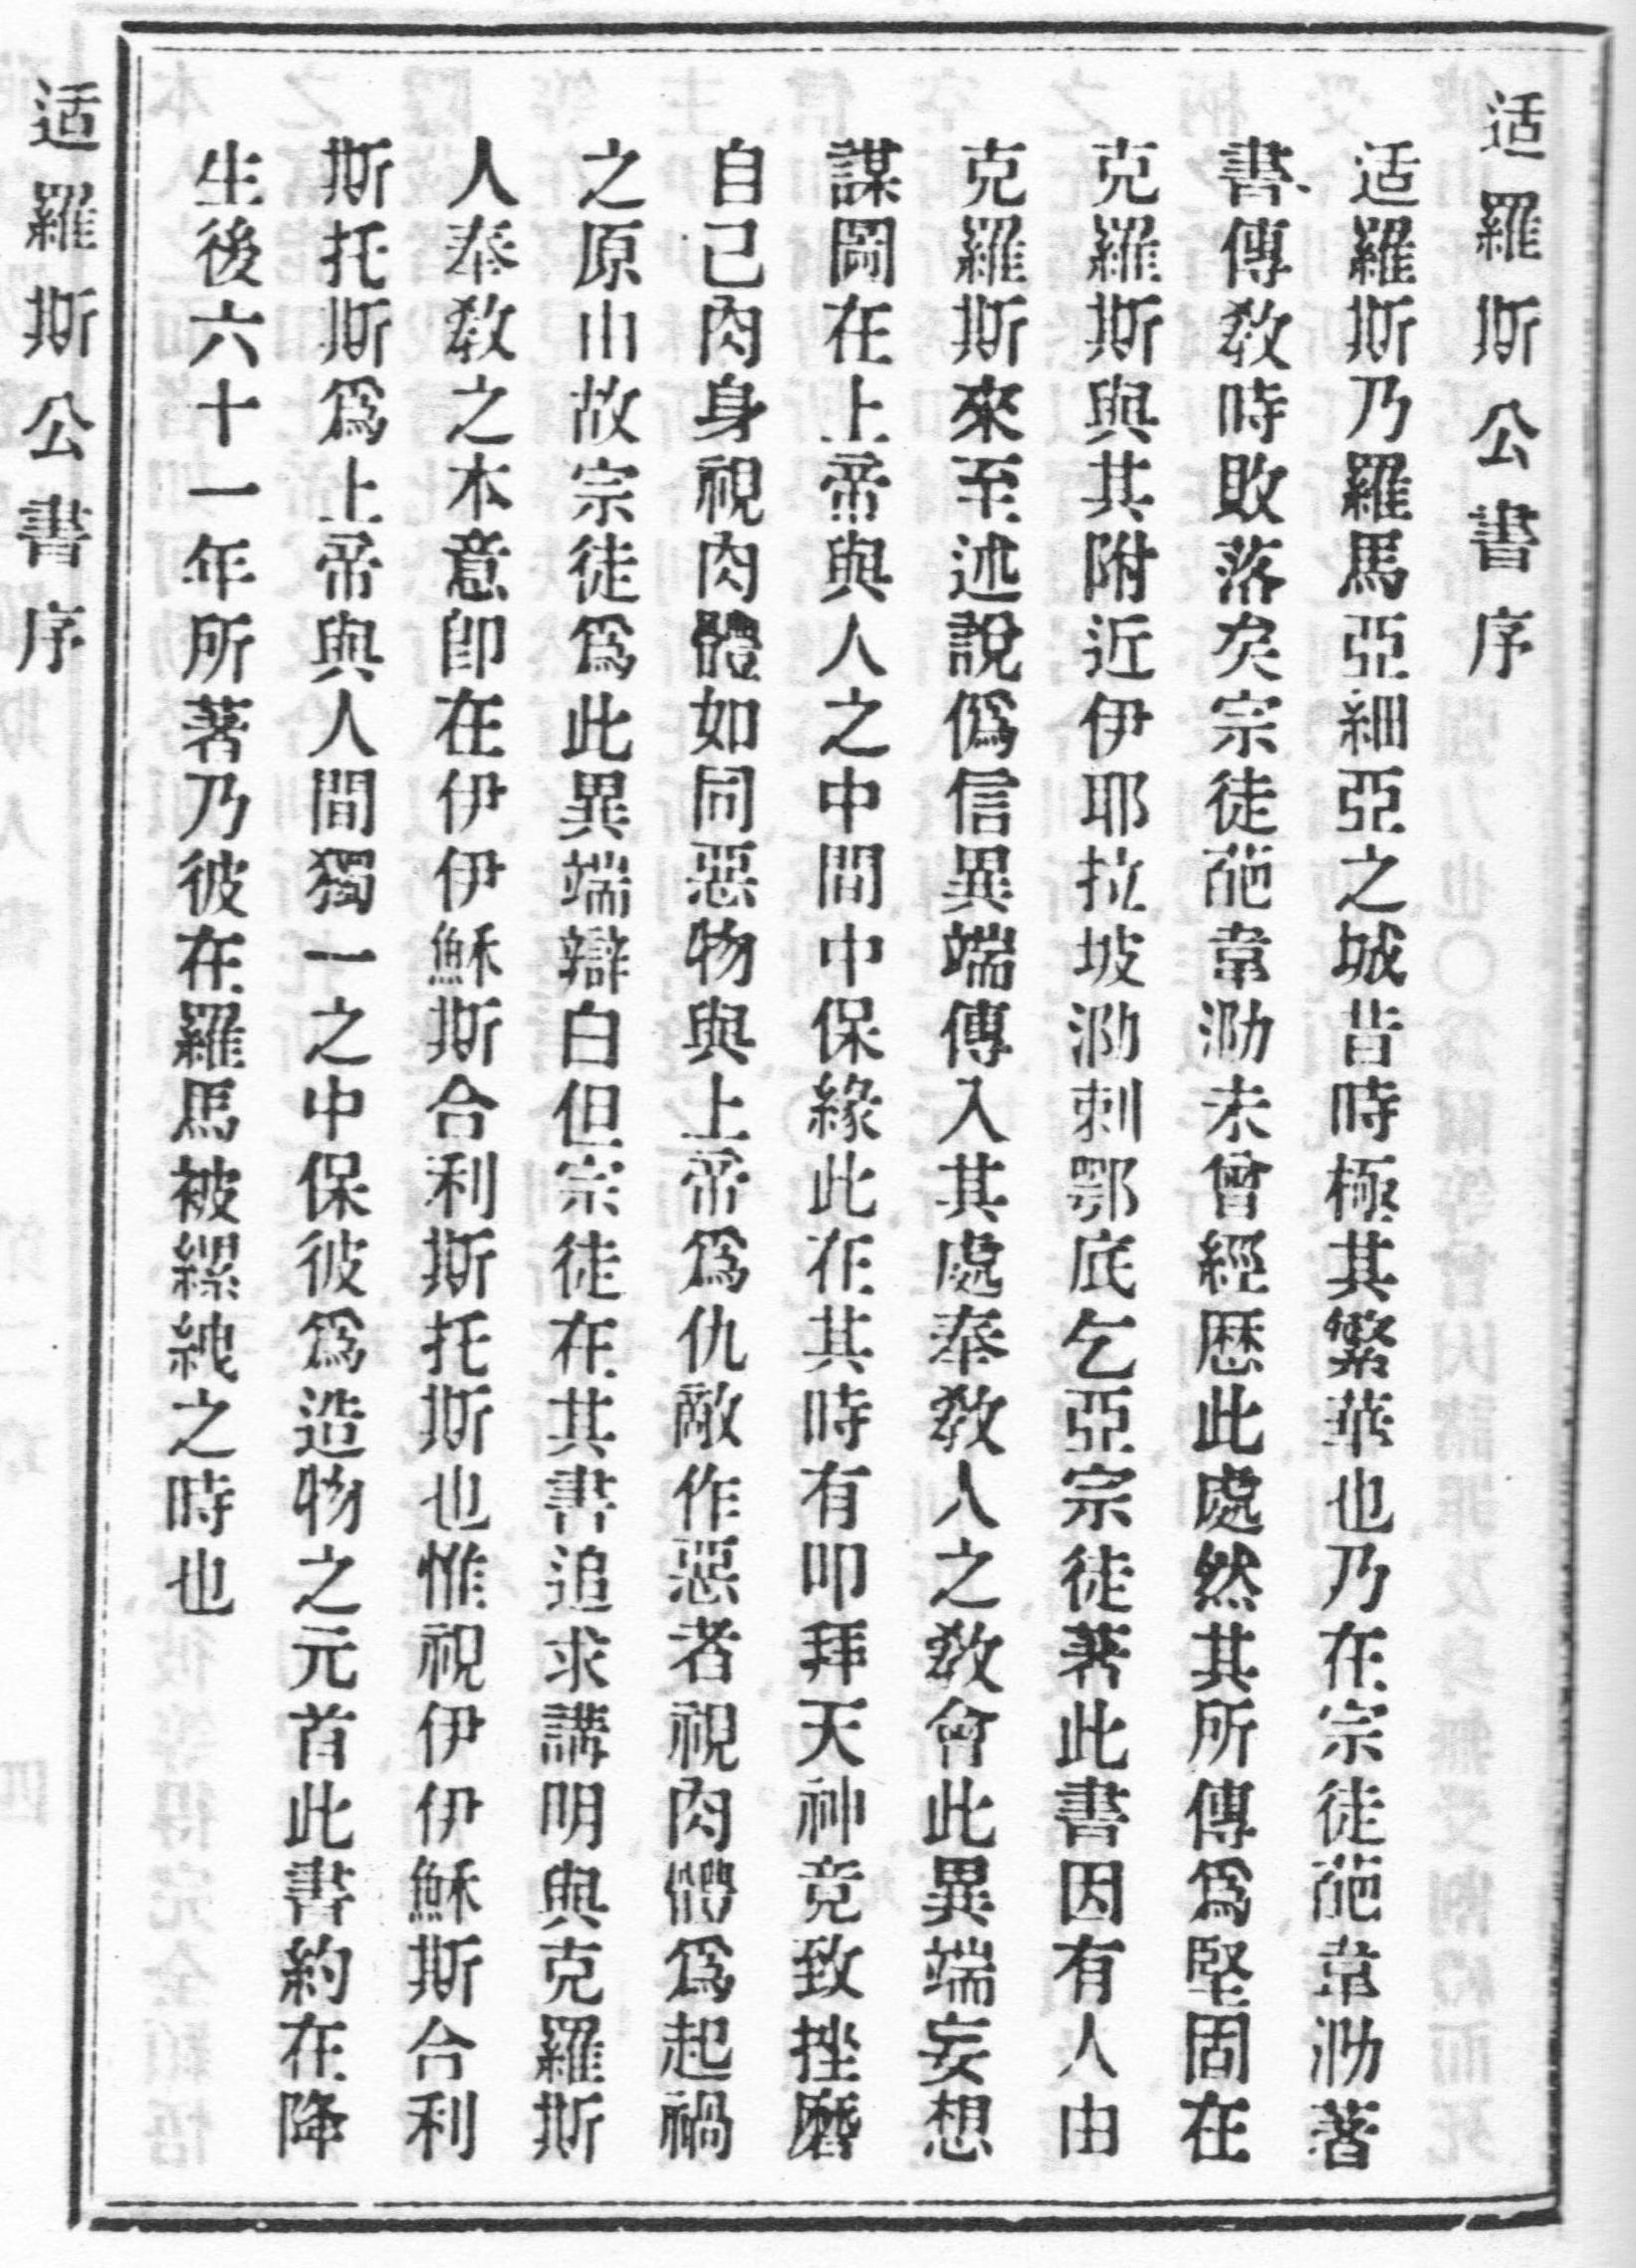 适羅斯公書序
适羅斯乃羅馬亞細亞之城昔時極其繁華也乃在宗徒葩韋泐著
書傳敎時敗落矣宗徒葩韋泐未曾經歷此處然其所傳爲堅固在
克羅斯與其附近伊耶拉坡泐刺鄂底乞亞宗徒著此書因有人由
克羅斯來至述說僞信異端傳入其處奉敎人之敎會此異端妄想
謀圖在上帝與人之中間中保緣此在其時有叩拜天神竟致挫磨
自己肉身視肉體如同惡物與上帝爲仇敵作惡者視肉體爲起禍
之原由故宗徒爲此異端辯白但宗徒在其書追求講明與克羅斯
人奉敎之本意卽在伊伊穌斯合利斯托斯也惟視伊伊穌斯合利
斯托斯爲上帝與人間獨一之中保彼爲造物之元首此書約在降
生後六十一年所著乃彼在羅馬被縲絏之時也
适羅斯公書序